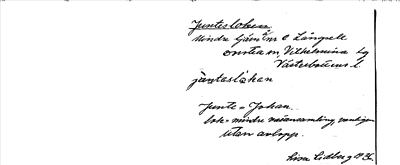 Juntesloken
Mindre tjärn m O Långsele
Vilhelmina lg
Västerbottens l.
juntaslo̊ken
Junte = Johan.
lok = mindre vattensamling, vanligen
utan avlopp.
Lisa Lidberg 1936